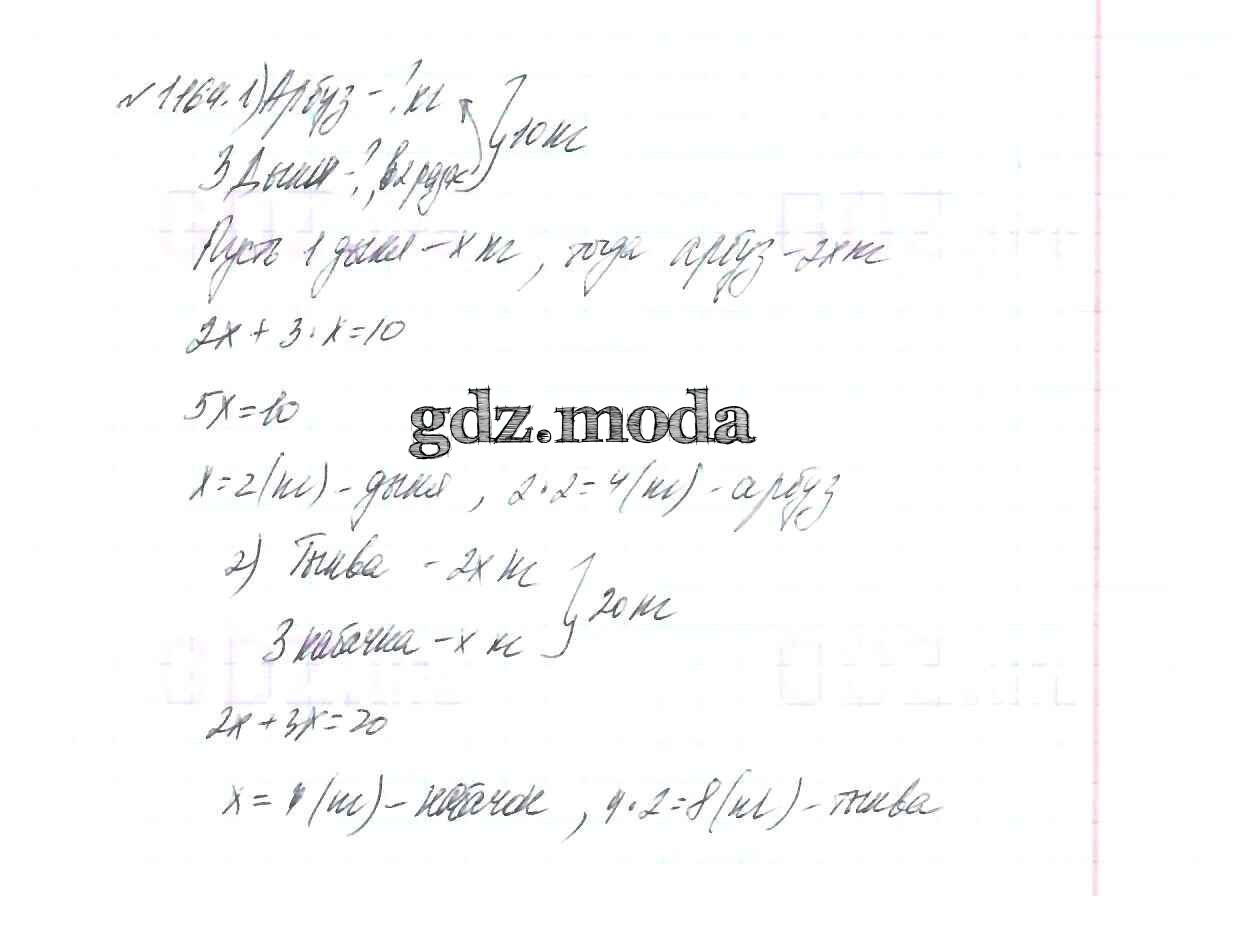 № 1164. 1) Арбуз - ? кг
3 Дыни - ?, в 2 р
10 кг
Пусть 1 дыня - x кг, тогда арбуз - 2x кг
2x + 3·x = 10
5x = 10
gdz.moda
x = 2 (кг) - дыня, 2·2 = 4 (кг) - арбуз
2) Тыква - 2x кг
20 кг
3 кабачка - x кг
2x + 3x = 20
x = 4 (кг) - кабачок, 4·2 = 8 (кг) - тыква